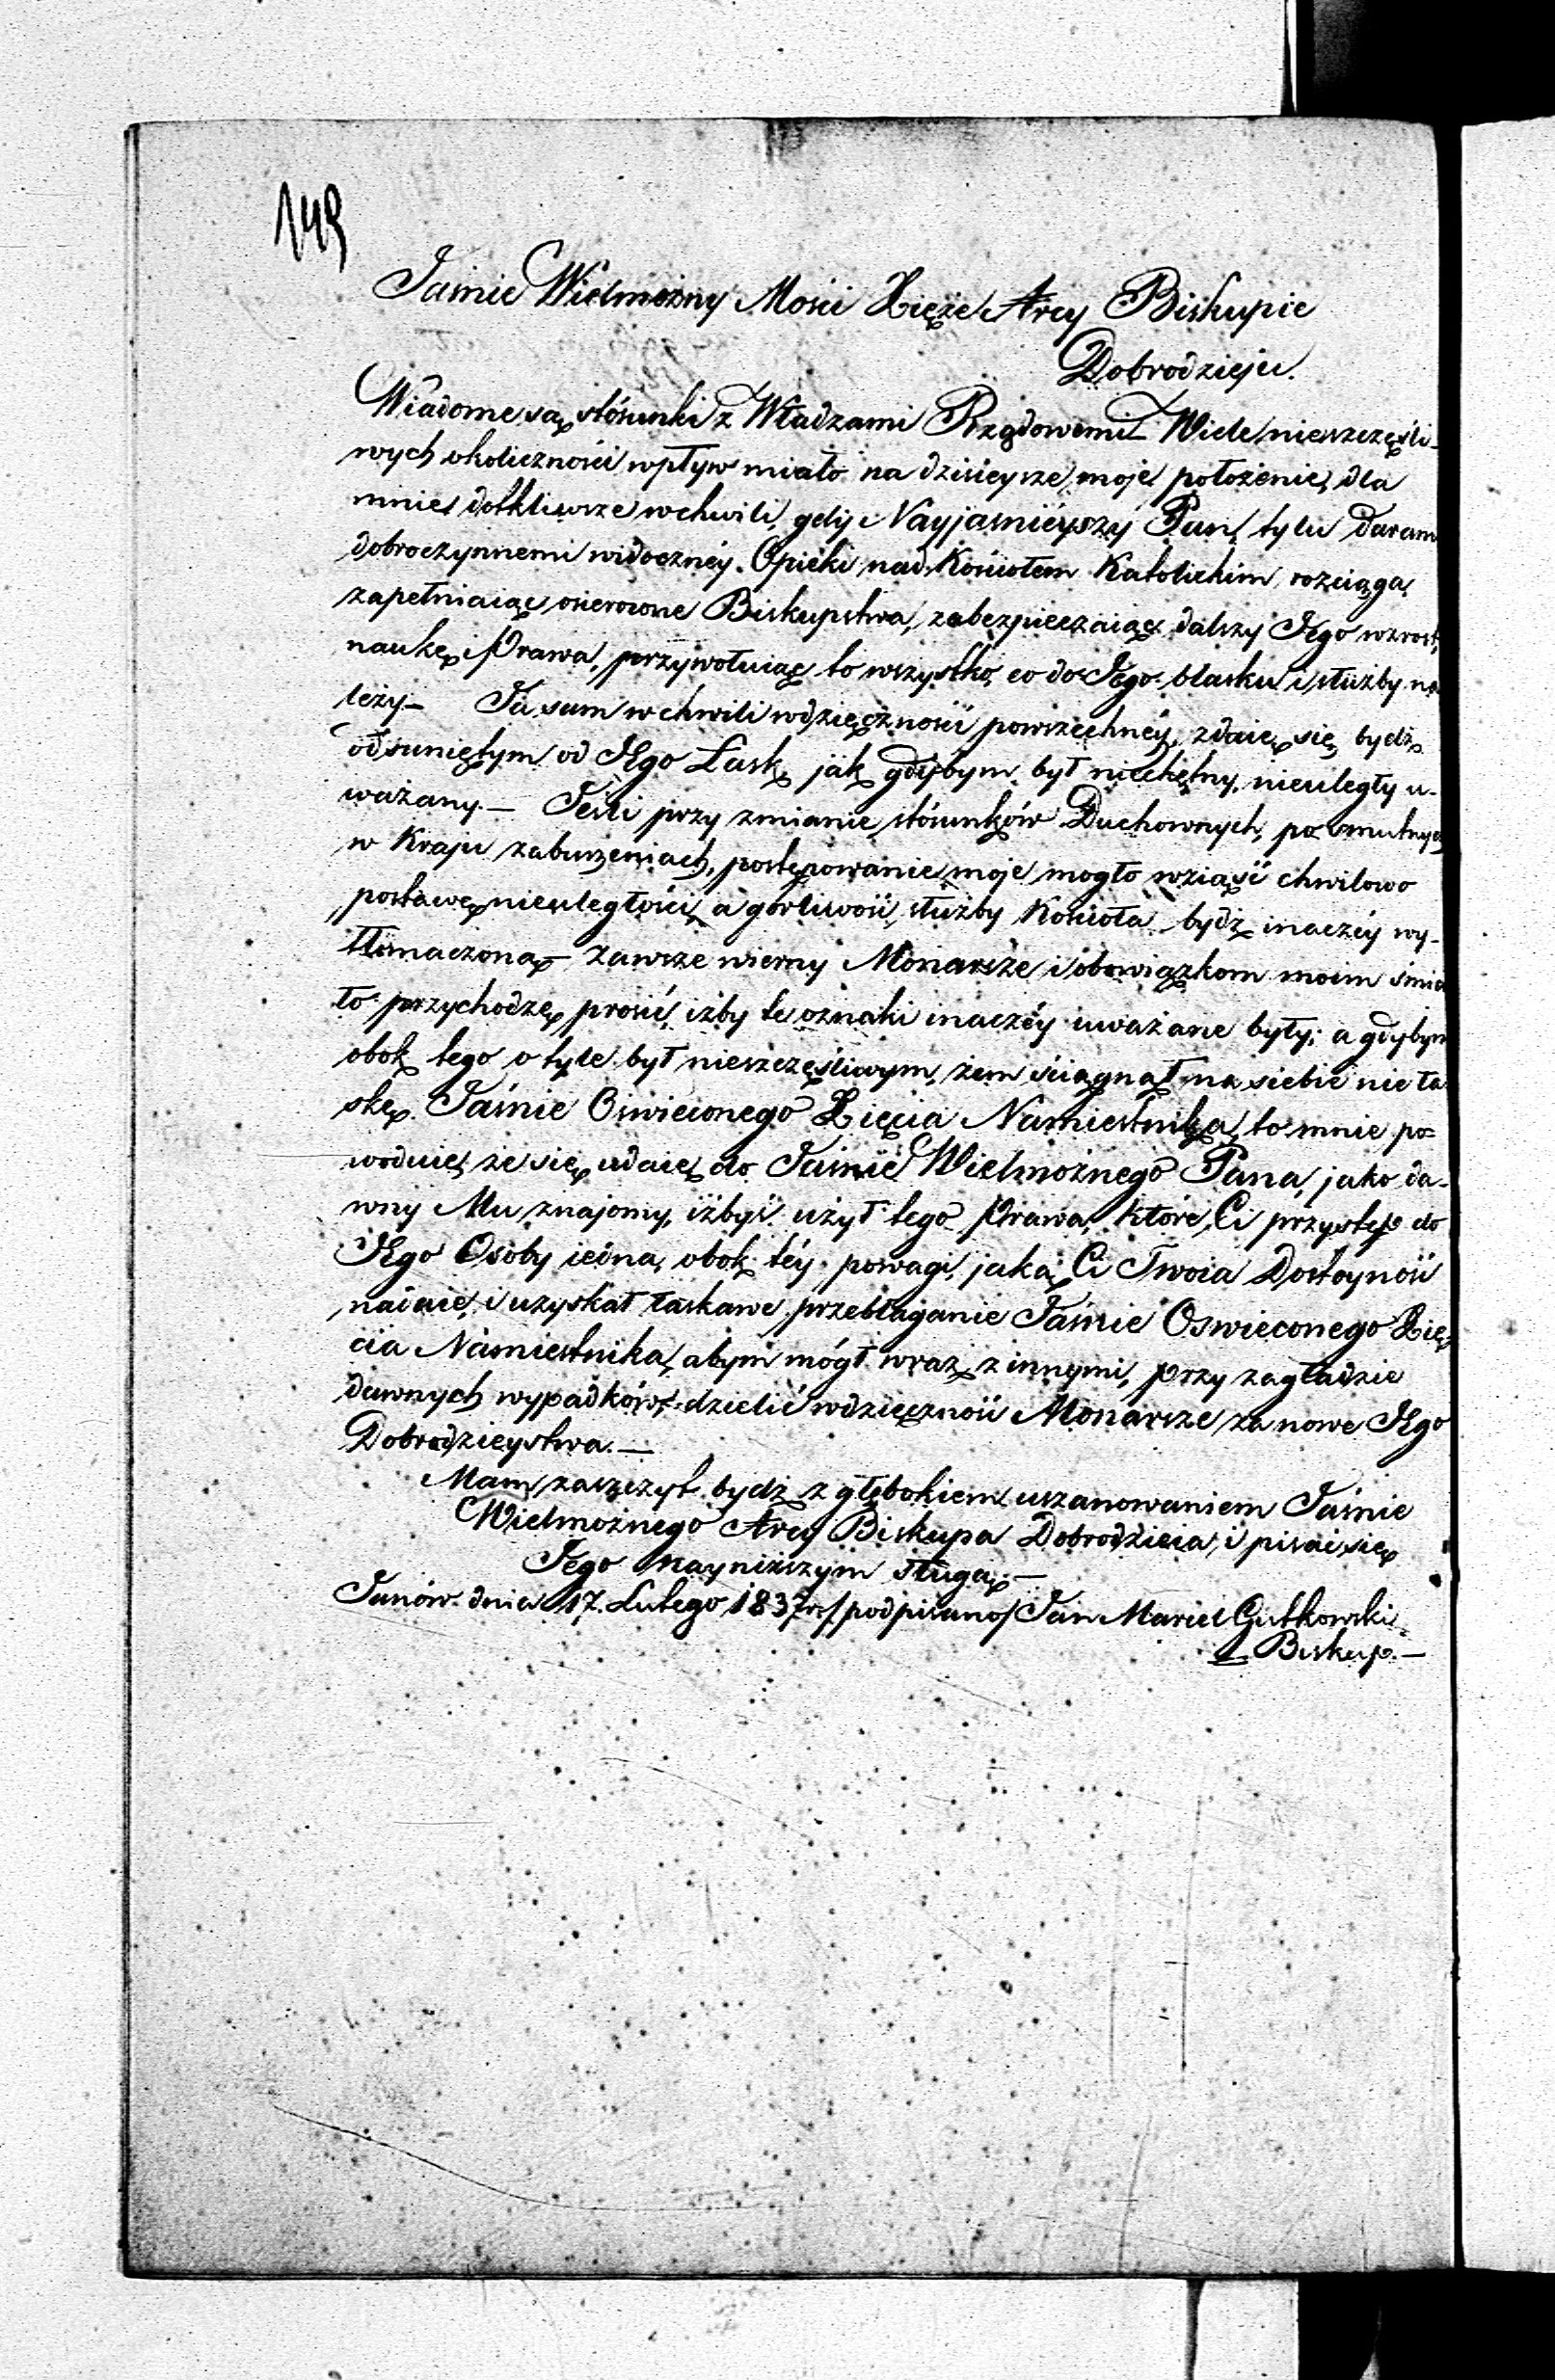 149
Jaśnie Wielmożny Mości Xięże Arcy Biskupie
Dobrodzieju.
Wiadome są stósunki z Władzami Rządowemi Wiele nieszczęśli-
wych okoliczności wpływ miało na dzisieysze moje położenie, dla
mnie dotkliwsze w chwili, gdy Nayjaśnieyszy Pan, tylu daram
dobroczynnemi widocznéy Opieki nad Kościołem Katolickim rozciąga,
zapełniaiąc osierocone Biskupstwa, zabezpieczaiąc dalszy Jego wzrost,
naukę i Prawa, przywołuiąc to wszystko, co do Jego blasku i służby na
leży – Ja sam w chwili wdzięczności powszechnéy, zdaię się bydź
odsuniętym od Jego Łask, jak gdybym był niechętny, nieuległy u-
ważany. – Jeśli przy zmianie stósunków Duchownych, po smutnych
w Kraju zaburzeniach, postępowanie moje mogło wziąść chwilowo
postawę nieuległości, a gorliwość służby Kościoła bydź inaczéy wy-
tłómaczoną – Zawsze wierny Monarsze i obowiązkom moim śmia
ło przychodzę prosić, iżby te oznaki inaczéy uważane były; a gdybym
obok tego o tyle był nieszczęśliwym, żem ściągnął na siebie nie ła
skę Jaśnie Oświeconego Xięcia Namiestnika, to mnie po-
woduie, że się udaię do Jaśnie Wielmożnego Pana, jako da-
wny Mu znajomy, iżbyś użył tego Prawa, które Ci przystęp do
Jego Osoby iedna, obok téy powagi, jaką Ci Twoia Dostoyność
nadaie, i uzyskał łaskawe przebłaganie Jaśnie Oswieconego Xię-
cia Namiestnika, abym mógł wraz z innymi, przy zagładzie
dawnych wypadków, dzielić wdzięczność Monarsze za nowe Jego
Dobrodzieystwa. –
Mam zaszczyt bydź z głębokiem uszanowaniem Jaśnie
Wielmożnego Arcy Biskupa Dobrodzieia, i pisać się
Jego nayniższym sługą. –
Janów dnia 17. Lutego 1837 r. /podpisano/ Jan Marcel Gutkowski
Biskup. –